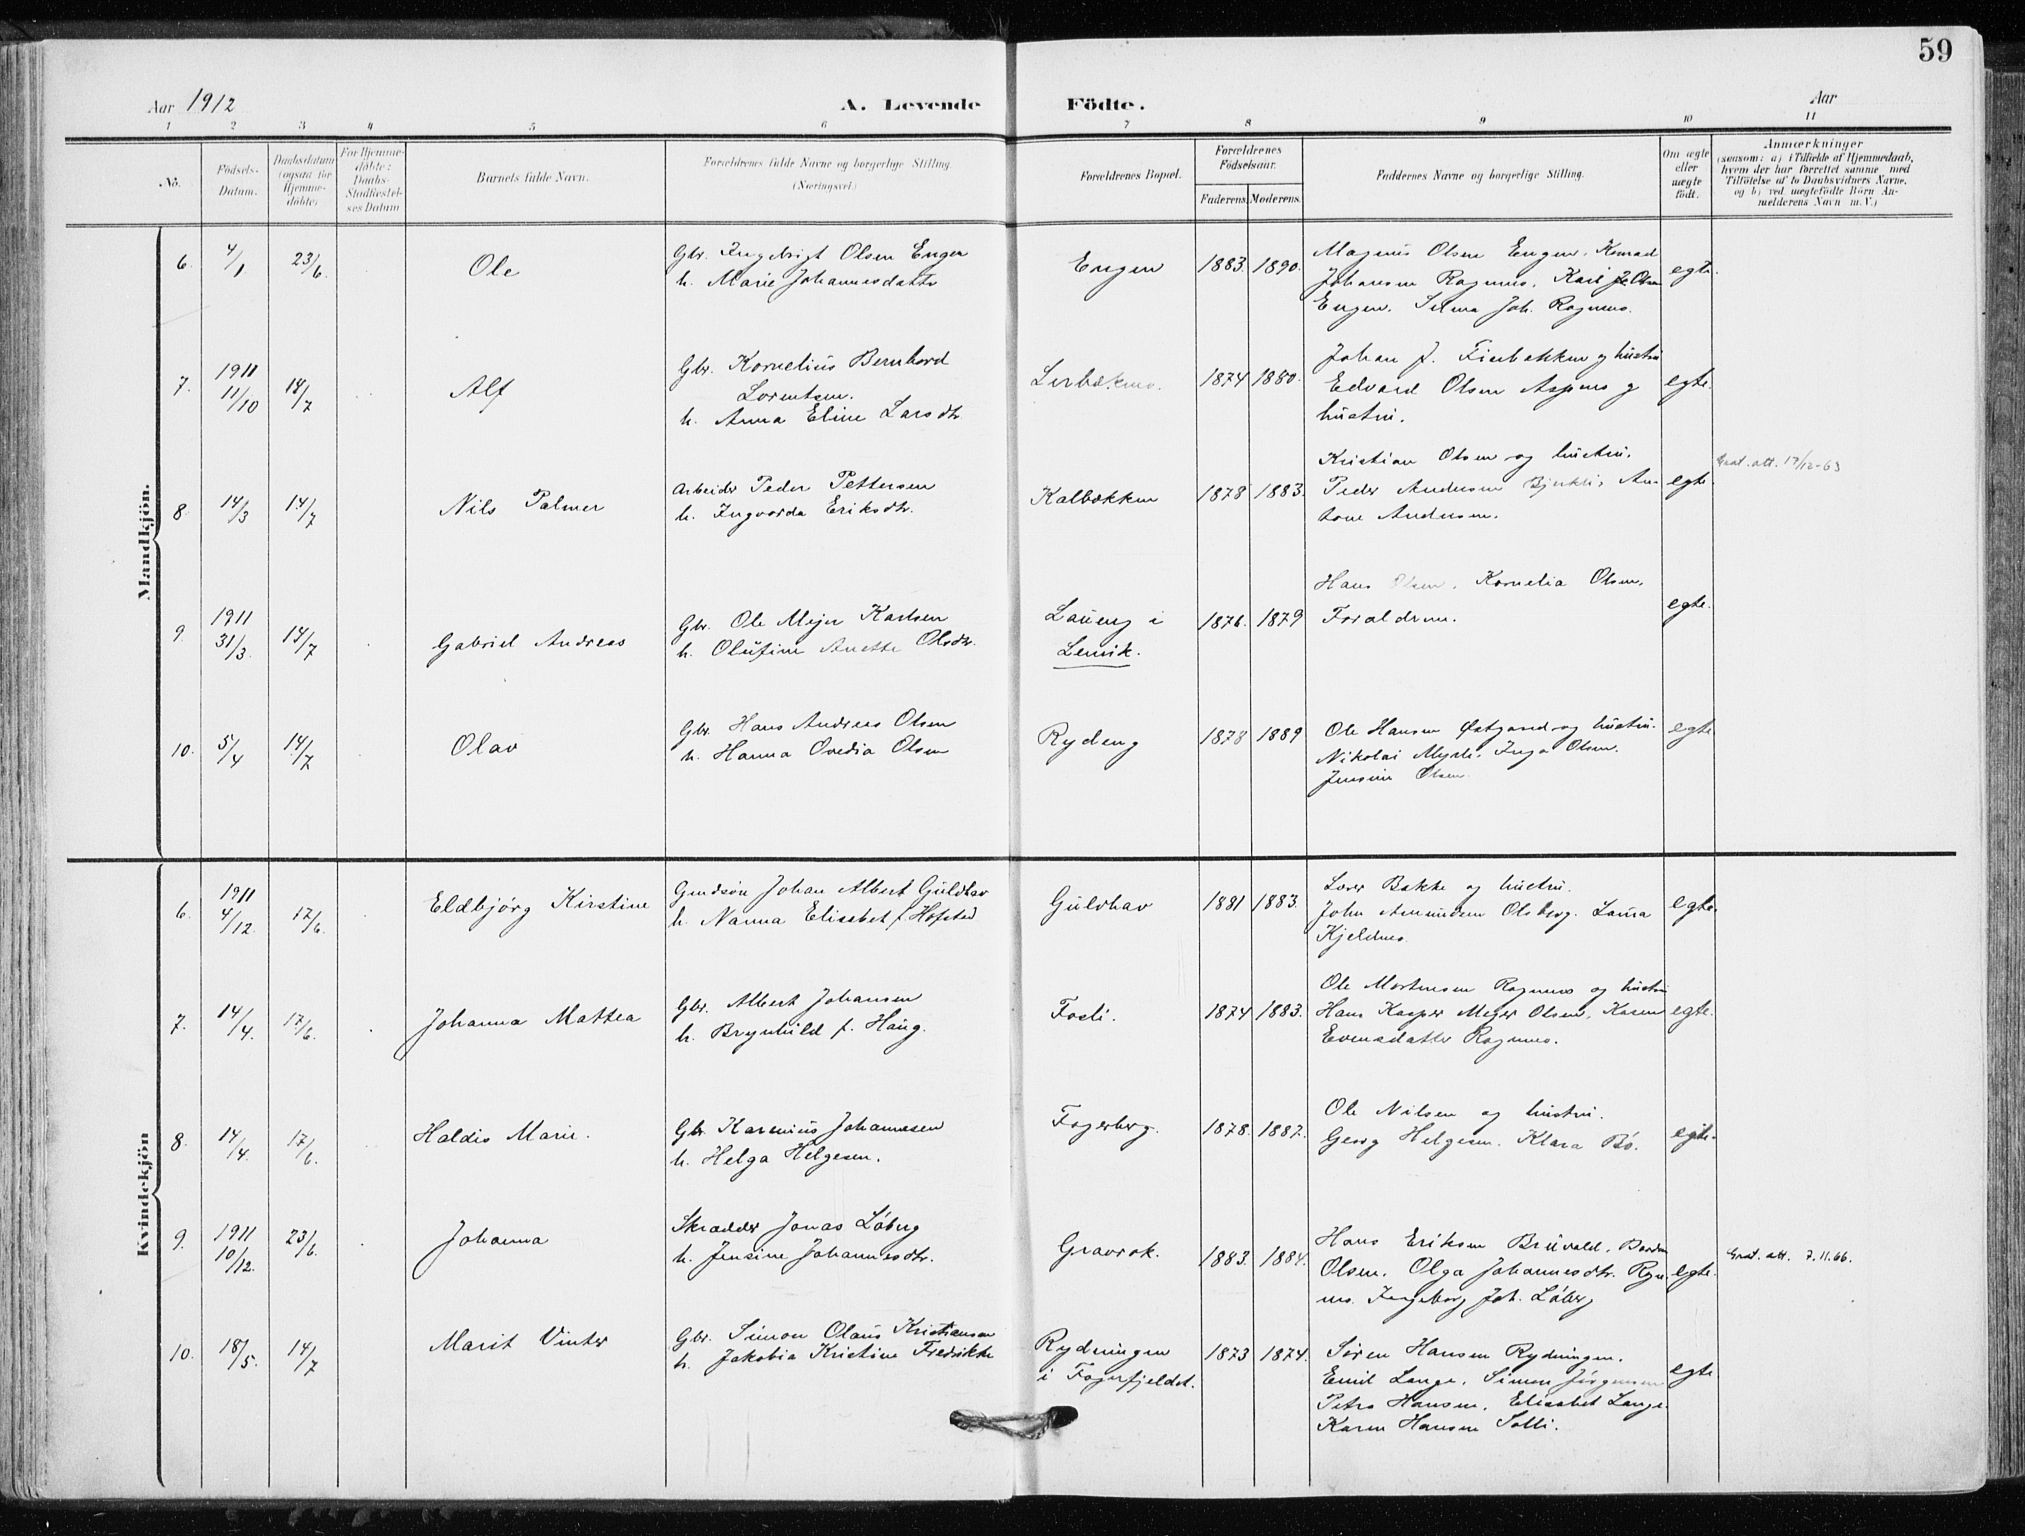 59
Aar 1912
A. Levende Födte.
Aar
1 2 3 4 5 6 7 8 9 10 11
No.
Födsels-
Datum.
Daabsdatum
(ogsaa for
Hjemme-
döbte)
For Hjemme-
döbte:
Daabs-
Stadfæstel-
ses Datum
Barnets fulde Navn.
Forældrenes fulde Navne og borgerlige Stilling
(Næringsvei.)
Forældrenes Bopæl.
Forældrenes
Födselsaar.
Faderens. Moderens.
Faddernes Navne og borgerlige Stilling.
Om ægte
eller
uægte
født.
Anmærkninger
(saasom: a) i Tilfælde af Hjemmedaab,
hvem der har forrettet samme med
Tilföielse af to Daabsvidners Navne,
og b) ved uægtefödte Börn An-
melderens Navn m. V.)
Mandkjön.
6. 4/1 23/6. Ole
Gbr. Ingebrigt Olsen Engen
h. Marie Johannesdatter
Engen 1883. 1890.
Magnus Olsen Engen. Konrad
Johansen Rognmo. Kari Olsen
Engen. Selma Joh. Rognmo.
egte.
7. 1911
11/10 14/7 Alf
Gbr. Kornelius Bernhard
Lorentsen.
h. Anna Eline Larsdtr.
Lerbækmo. 1874 1880.
Johan J. Finbakken og hustru
Edvard Olsen Aspmo og
hustru.
egte.
8. 14/3 14/7 Nils Palmer
Arbeider Peder Pettersen
h. Ingvarda Eriksdtr.
Kalbækken 1878 1883.
Kristian Olsen og hustru.
Peder Andersen Bjerkli, An-
tone Andersen.
egte.
Grat. att. 17/12-63
9. 1911
31/3. 14/7 Gabriel Andreas
Gbr. Ole Mejer Karlsen
h. Olufine Anette Olsdtr.
Laueng i
Lenvik. 1876. 1879
Hans Olsen. Kornelia Olsen.
Forældrene.
egte.
10. 5/4 14/7 Olav
Gbr. Hans Andreas Olsen
h. Hanna Ovedia Olsen
Rydeng 1878 1889
Ole Hansen Østgaard og hustru.
Nikolai Myrli. Inga Olsen.
Jensine Olsen.
egte
Kvindekjön
6. 1911
4/12. 17/6. Eldbjørg Kirstine
Grndsøn Johan Albert Guldhav
h. Nanna Elisabet f. Hofsted
Guldhav 1881 1883.
Lærer Bakke og hustru.
John Amundsen Olsborg. Laura
Kjeldmo.
egte.
7. 14/4. 17/6. Johanna Mattea
Gbr. Albert Johansen
h. Brynhild f. Haug.
Fosli. 1874 1883.
Ole Mortensen Rognmo og hustru
Hans Kasper Mejer Olsen. Karen
Evensdatter Rognmo.
egte.
8. 14/4. 17/6. Haldis Marie.
Gbr. Karenius Johannesen
h. Helga Helgesen.
Fagerberg. 1878. 1887.
Ole Nilsen og hustru.
Georg Helgesen. Klara Bø.
egte.
9. 1911
10/12. 23/6. Johanna
Skrædder Jonas Løberg
h. Jensine Johannesdtr.
Gravrok. 1883. 1884.
Hans Eriksen Bruvold. Bardon
Olsen. Olga Johannesdtr. Rogn-
mo. Ingeborg Joh. Løberg
egte.
Grat. att. 7.11.66.
10. 18/5. 14/7 Marit Vinter
Gbr. Simon Olaus Kristiansen
h. Jakobia Kristine Fredrikke
Rydningen
i Fagerfjeldet. 1873 1874.
Søren Hansen Rydningen.
Emil Lange. Simon Jørgensen
Petra Hansen. Elisabet Lange.
Karen Hansen Solli.
egte